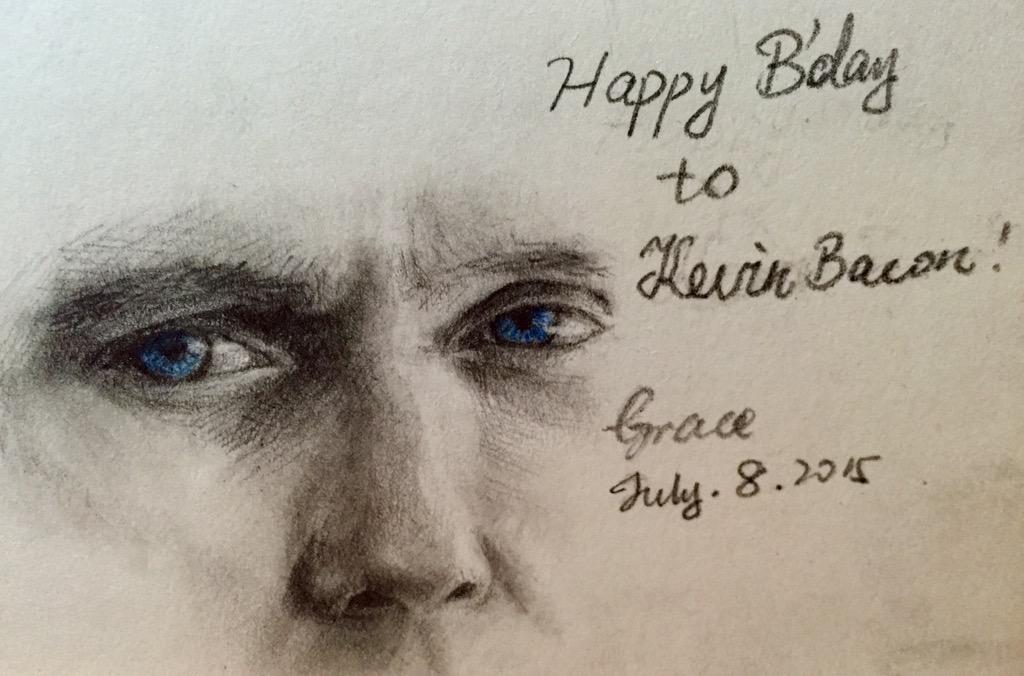 Happy B'day
to
Kevin Bacon!
Grace
July. 8. 2015